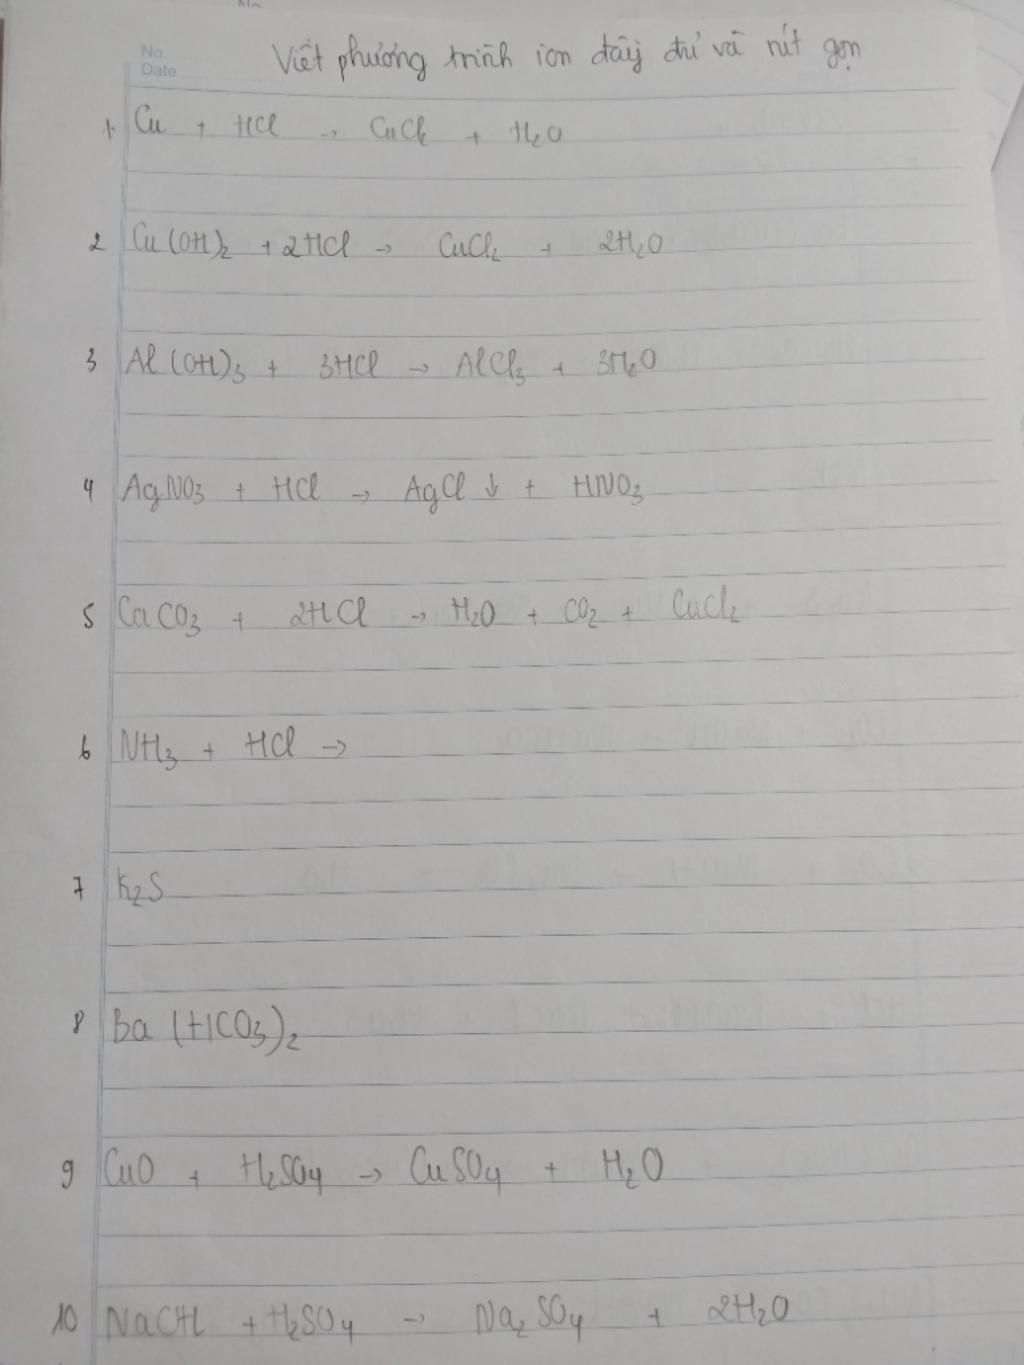 No.
Date
Viết phương trình ion đầy đủ và rút gọn
1. Cu + HCl → CuCl₂ + H₂O
2 Cu(OH)₂ + 2HCl → CuCl₂ + 2H₂O
3 Al(OH)₃ + 3HCl → AlCl₃ + 3H₂O
4 AgNO₃ + HCl → AgCl ↓ + HNO₃
5 CaCO₃ + 2HCl → H₂O + CO₂ + CuCl₂
6 NH₃ + HCl →
7 K₂S
8 Ba(HCO₃)₂
9 CuO + H₂SO₄ → CuSO₄ + H₂O
10 NaOH + H₂SO₄ → Na₂SO₄ + 2H₂O